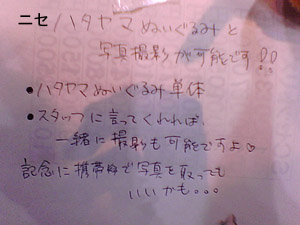 ニセ ハタヤマぬいぐるみと
写真撮影が可能です!!
●ハタヤマぬいぐるみ単体
●スタッフに言ってくれれば、
一緒に撮影も可能ですよ♡
記念に携帯で写真を取っても
いいかも・・・